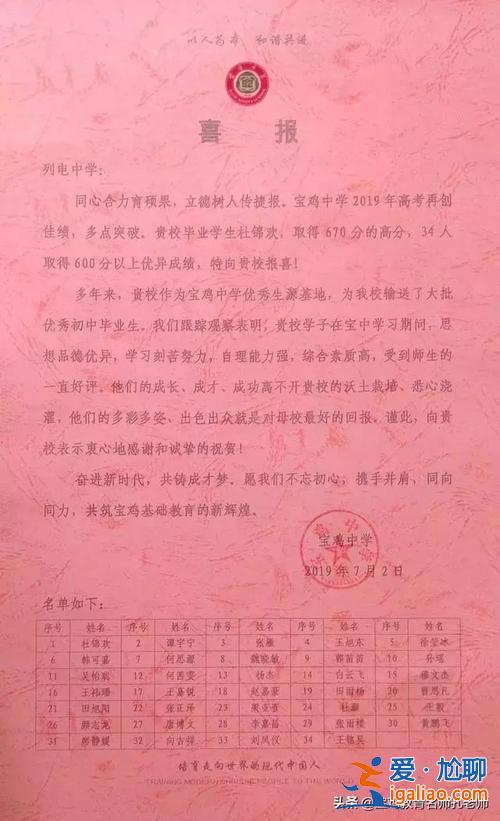 以人为本 和谐共进
喜 报
列电中学:
同心合力育硕果，立德树人传捷报。宝鸡中学 2019 年高考再创
佳绩，多点突破。贵校毕业学生杜锦欢，取得 670 分的高分，34 人
取得 600 分以上优异成绩，特向贵校报喜!
多年来，贵校作为宝鸡中学优秀生源基地，为我校输送了大批
优秀初中毕业生。我们跟踪观察表明，贵校学子在宝中学习期间，思
想品德优异，学习刻苦努力，自理能力强，综合素质高，受到师生的
一直好评。他们的成长、成才、成功离不开贵校的沃土栽培、悉心浇
灌，他们的多彩多姿、出色出众就是对母校最好的回报。谨此，向贵
校表示衷心地感谢和诚挚的祝贺!
奋进新时代，共铸成才梦。愿我们不忘初心，携手并肩，同向
同力，共筑宝鸡基础教育的新辉煌。
宝鸡中学
2019 年 7 月 2 日
名单如下:
序号 姓名 序号 姓名 序号 姓名 序号 姓名 序号 姓名
1 杜锦欢 2 谭宇宁 3 张雁 4 王旭东 5 徐莹冰
6 韩可嘉 7 何思源 8 魏晓敏 9 郭苗苗 10 孙瑶
11 吴怡宸 12 何茜雯 13 杨杰 14 白云飞 15 穆文杰
16 王祎璠 17 王嘉锐 18 赵嘉豪 19 田雨杨 20 曹思凡
21 田旭阳 22 张正泽 23 梁亚茜 24 杜灏 25 王毅
26 顾志龙 27 唐博文 28 李嘉昌 29 张雨楼 30 黄鹏飞
31 彭静媛 32 向吉祥 33 刘凤仪 34 王铭昊
培育走向世界的现代中国人
TRAINING MODERN CHINESE PEOPLE TO THE WORLD
爱·尬聊
igaliao.com
头条 @宝鸡教育名师孔老师